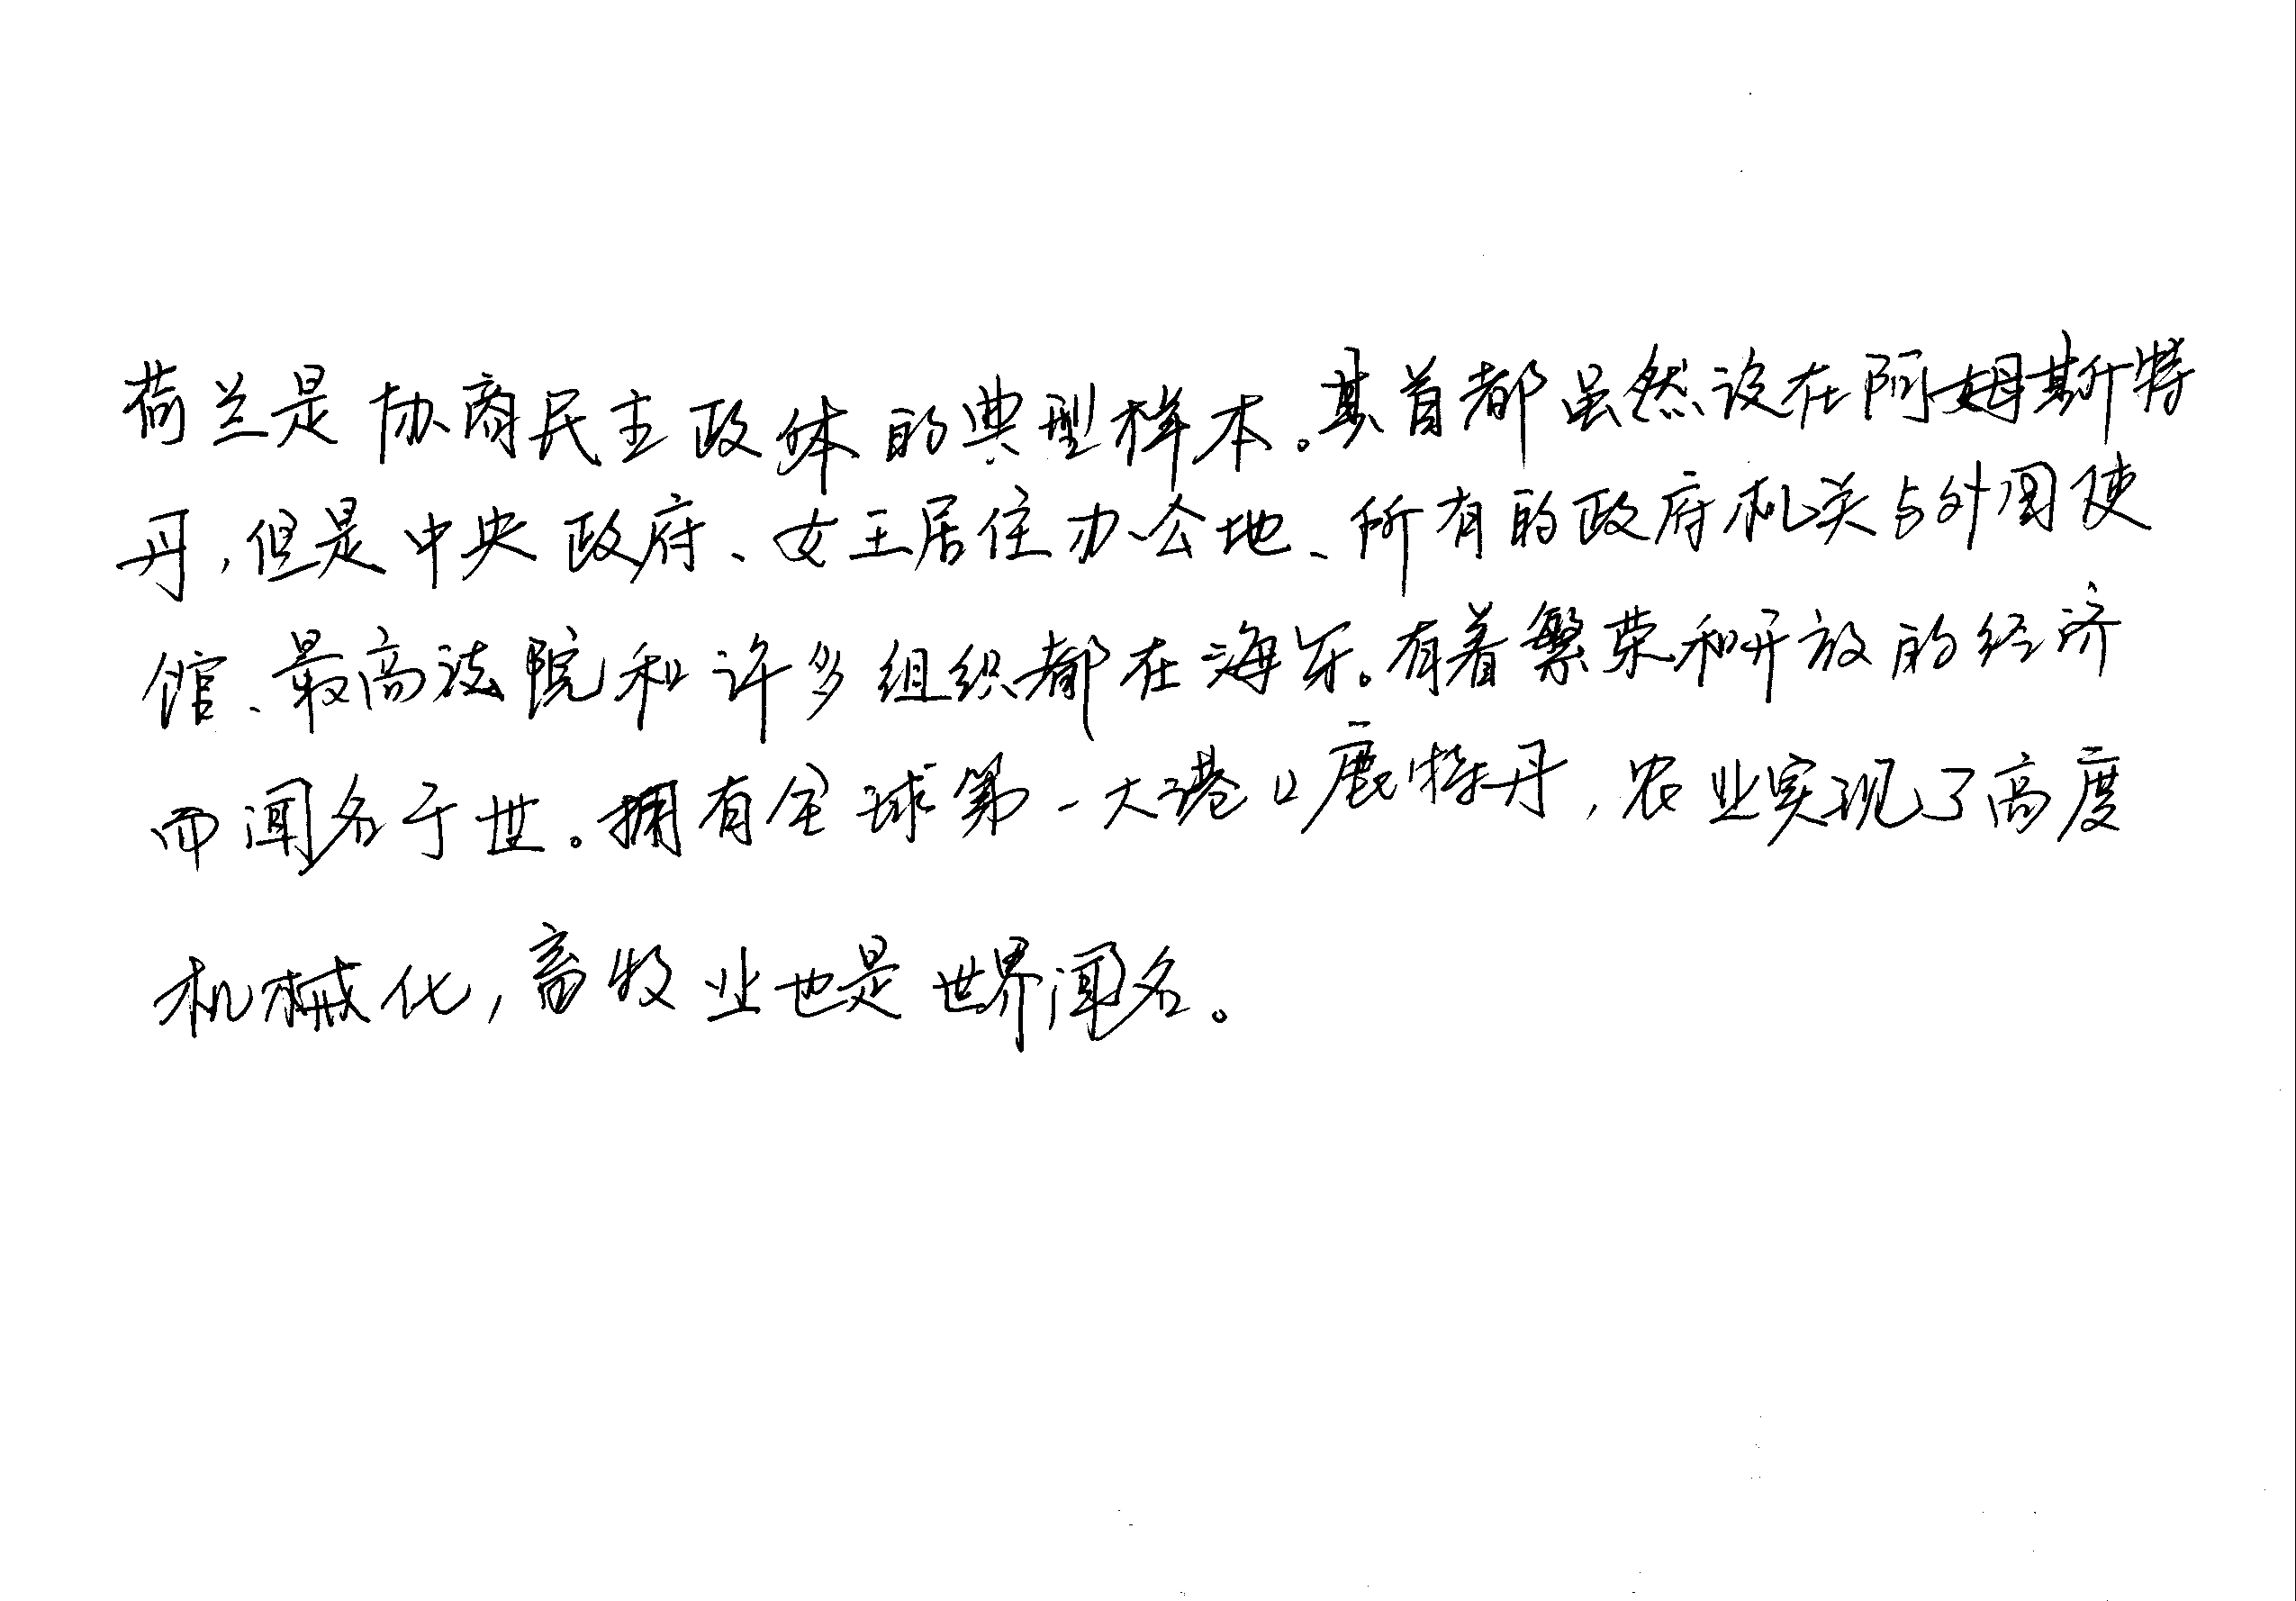 荷兰是协商民主政体的典型样本。其首都虽然设在阿姆斯特
丹，但是中央政府、女王居住办公地、所有的政府机关与外国使
馆、最高法院和许多组织都在海牙。有着繁荣和开放的经济
而闻名于世。拥有全球第一大港口鹿特丹，农业实现了高度
机械化，畜牧业也是世界闻名。